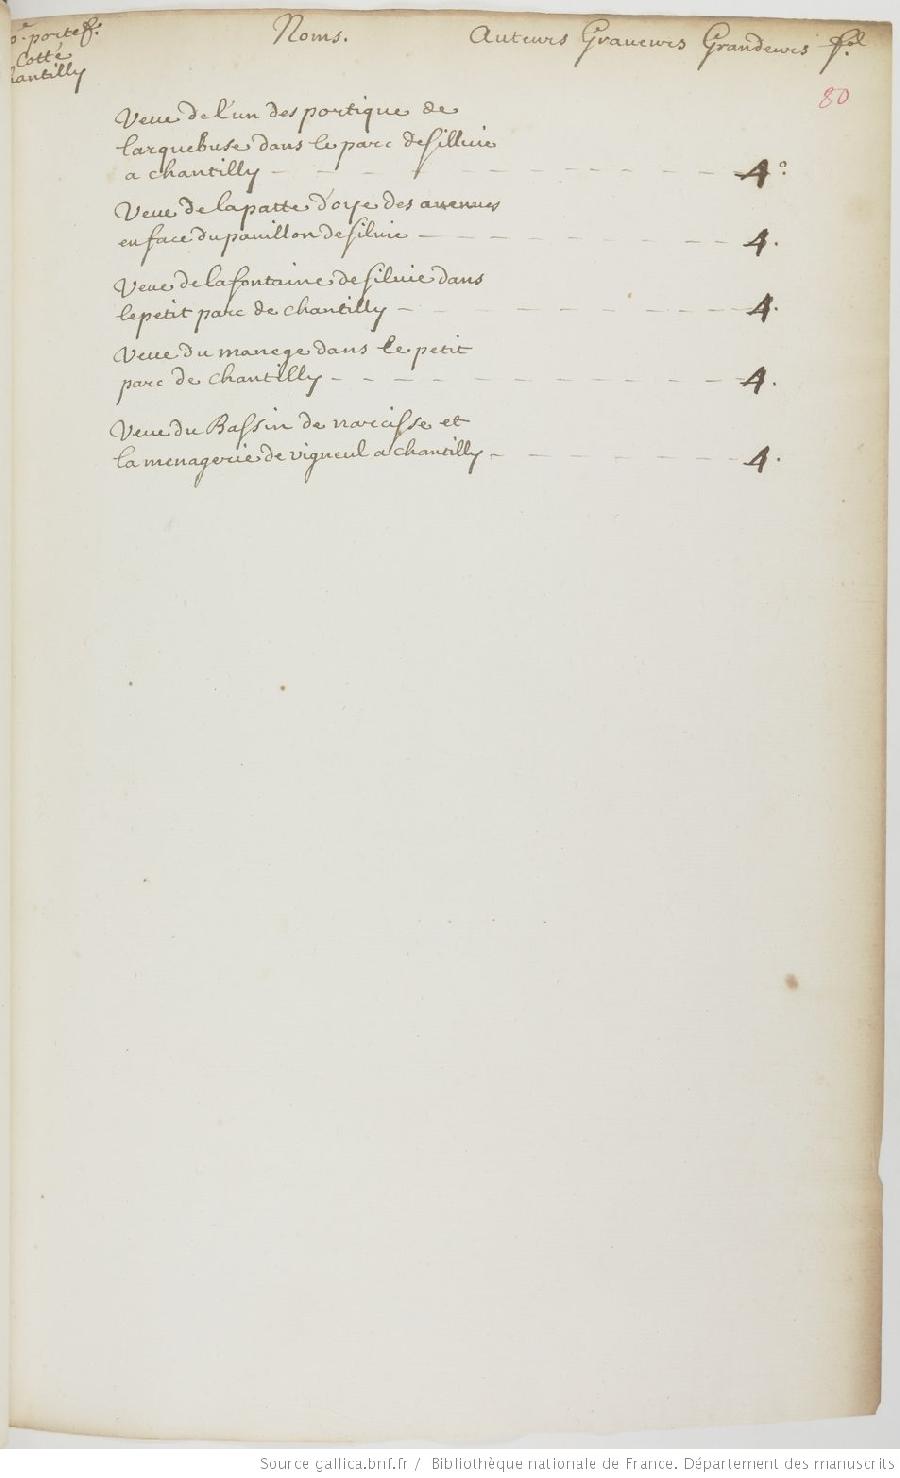 portef.e Noms. Auteurs Graveurs Grandeurs fol.
Cotté
hantilly
80
Veue de l'un des portique de
larquebuse dans le parc de Sillvie
a chantilly - - - - - - - - - - 4.°
Veue de la patte d'oye des avenues
en face du pavillon de silvie - - - - - - - 4.
Veue de la fontaine de silvie dans
le petit parc de chantilly - - - - - - - - 4.
Veue du manege dans le petit
parc de chantilly - - - - - - - - - - 4.
Veue du Bassin de narcisse et
la menagerie de vigneul a chantilly - - - - - - 4.
Source gallica.bnf.fr / Bibliothèque nationale de France. Département des manuscrits